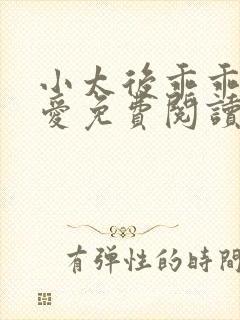 小太後乖乖
愛免費閱讀
有弹性的時間